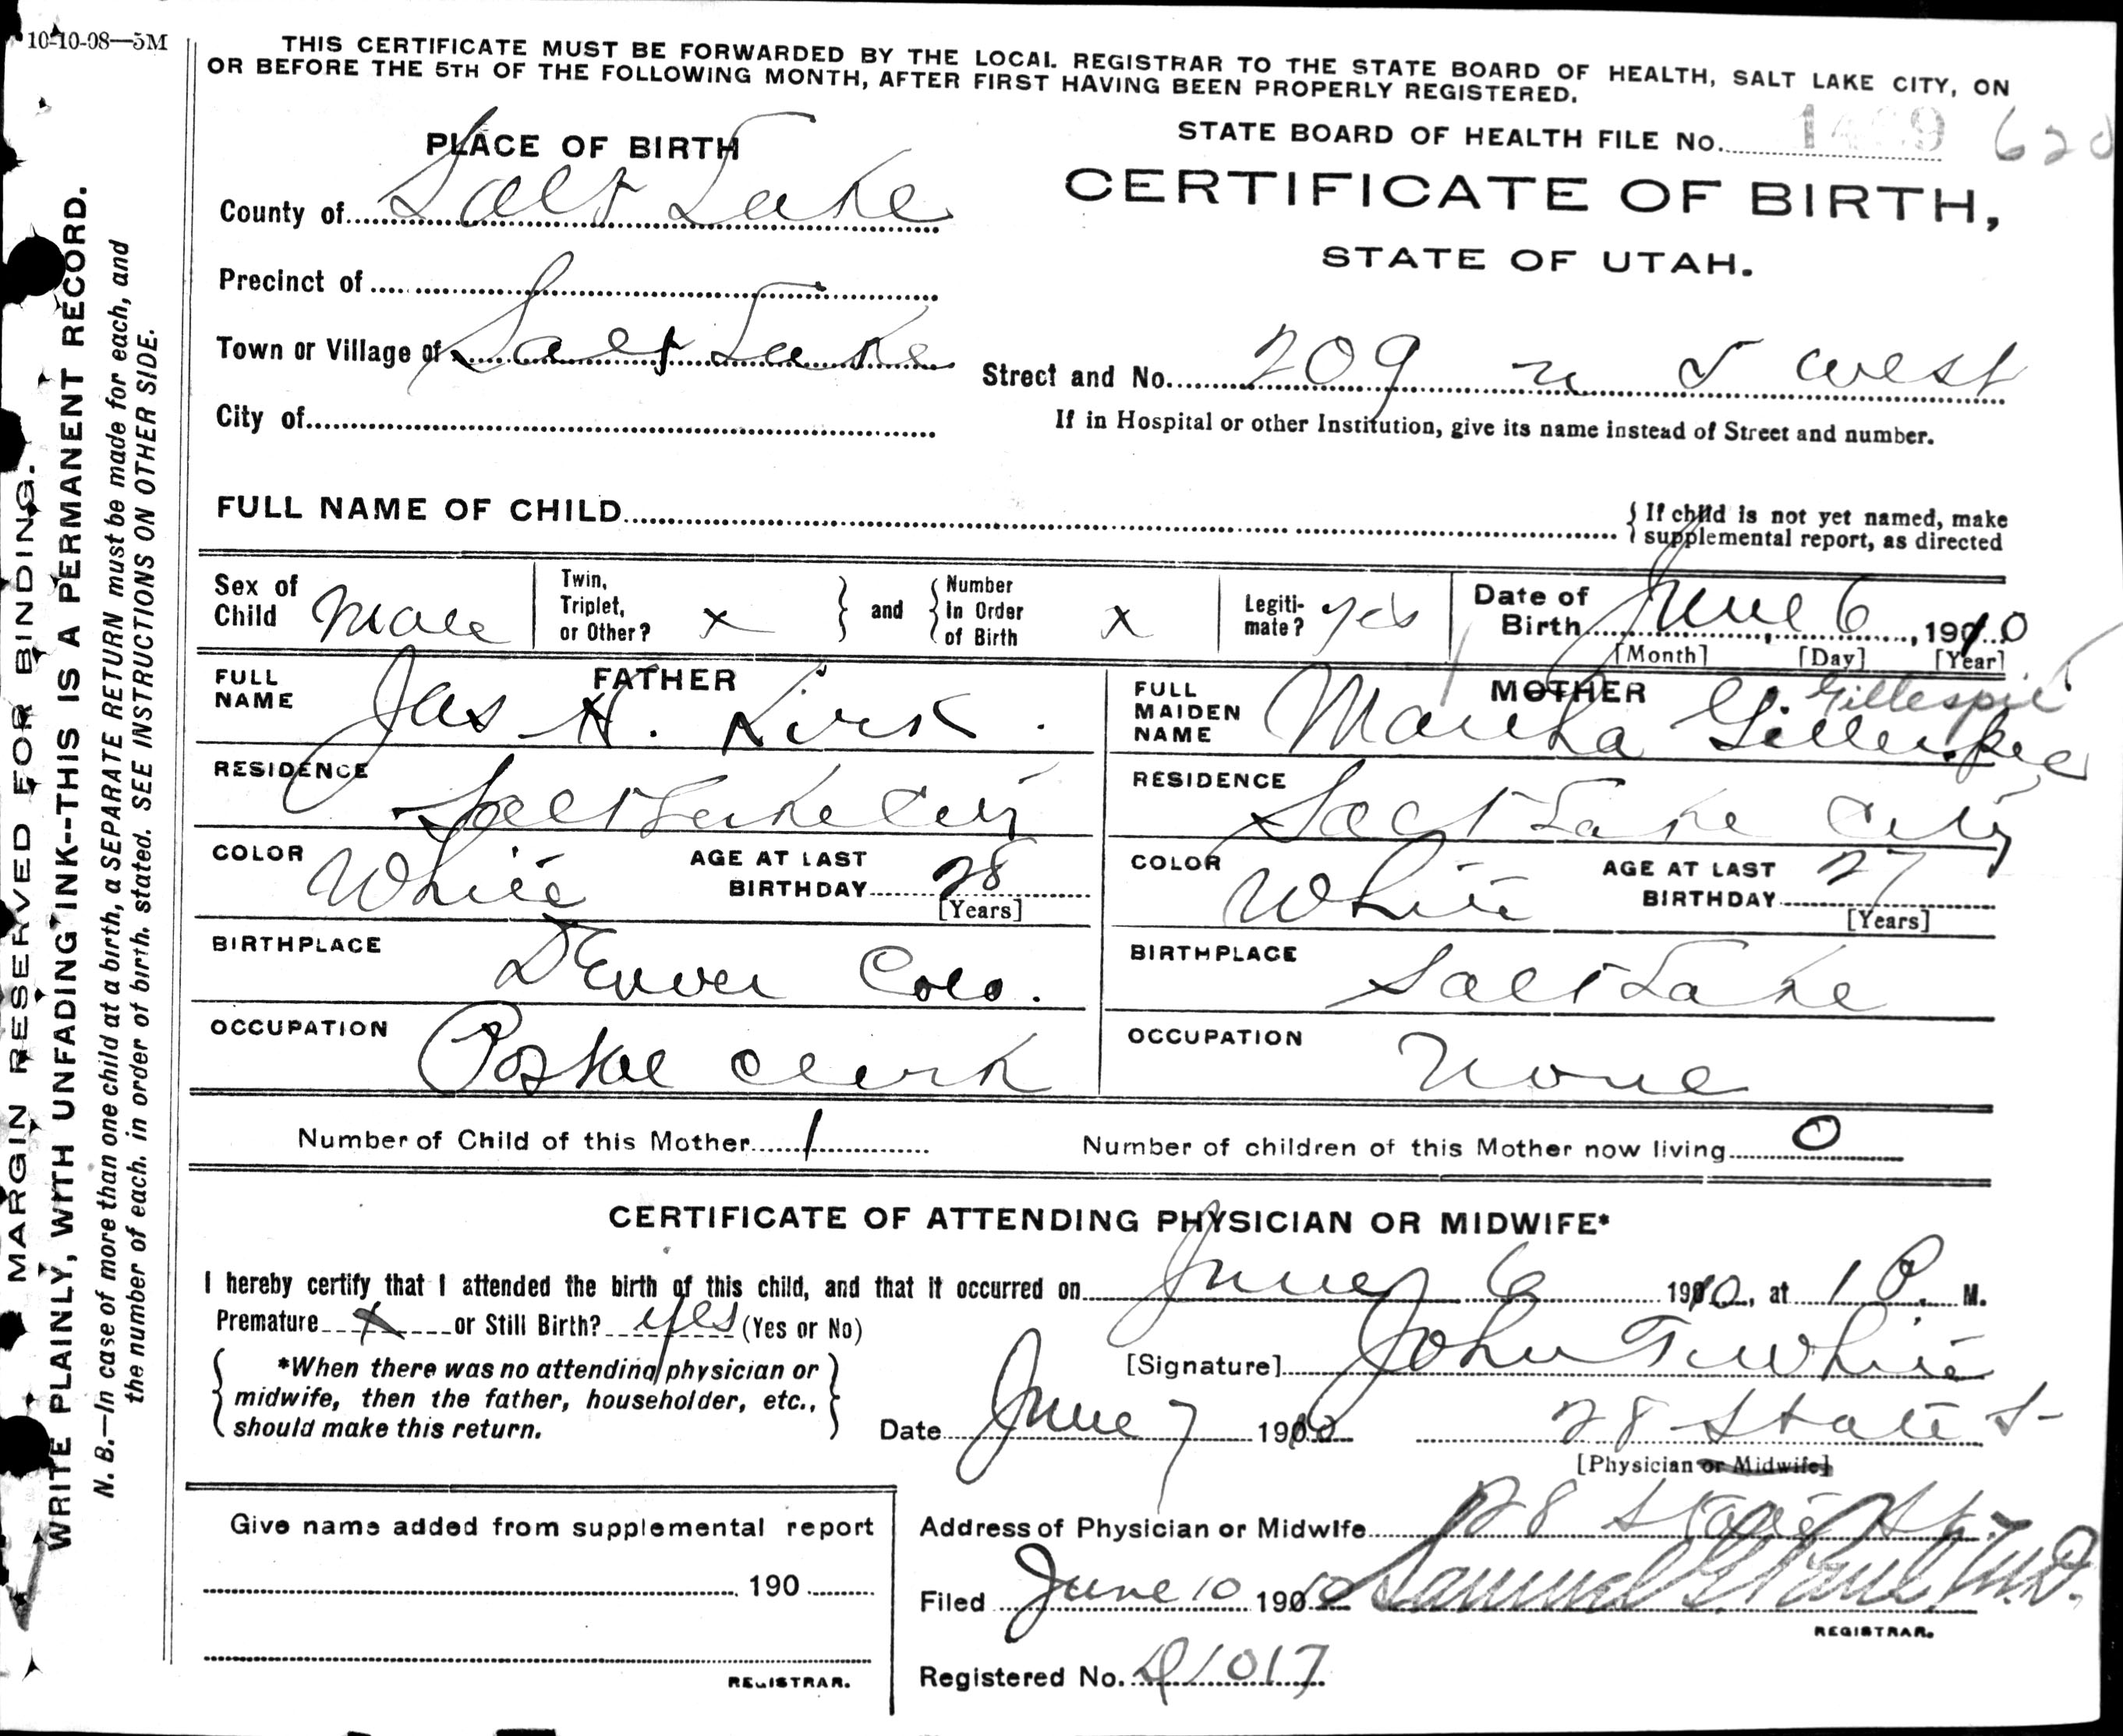 10-10-08—5M
THIS CERTIFICATE MUST BE FORWARDED BY THE LOCAL REGISTRAR TO THE STATE BOARD OF HEALTH, SALT LAKE CITY, ON
OR BEFORE THE 5TH OF THE FOLLOWING MONTH, AFTER FIRST HAVING BEEN PROPERLY REGISTERED.
STATE BOARD OF HEALTH FILE No.
CERTIFICATE OF BIRTH,
STATE OF UTAH.
PLACE OF BIRTH
County of Salt Lake
Precinct of
Town or Village of Salt Lake
City of
Street and No. 209 n 5 west
If in Hospital or other Institution, give its name instead of Street and number.
FULL NAME OF CHILD
{ If child is not yet named, make
{ supplemental report, as directed
Sex of Child Male
Twin, Triplet, or Other? x } and { Number in Order of Birth x
Legitimate? yes
Date of Birth June 6, 1910
[Month] [Day] [Year]
FATHER
FULL NAME Jas H. Kirk.
RESIDENCE Salt Lake City
COLOR White
AGE AT LAST BIRTHDAY 28
[Years]
BIRTHPLACE Denver Colo.
OCCUPATION Postal clerk
MOTHER
Gillespie
FULL MAIDEN NAME Martha G. Gillespie
RESIDENCE Salt Lake City
COLOR White
AGE AT LAST BIRTHDAY 27
[Years]
BIRTHPLACE Salt Lake
OCCUPATION None
Number of Child of this Mother 1
Number of children of this Mother now living 0
CERTIFICATE OF ATTENDING PHYSICIAN OR MIDWIFE*
I hereby certify that I attended the birth of this child, and that it occurred on June 6 1910, at 1 P. M.
Premature x or Still Birth? yes (Yes or No)
*When there was no attending physician or
midwife, then the father, householder, etc.,
should make this return.
[Signature] John T White
Date June 7 1910
28 State St
[Physician or Midwife]
Address of Physician or Midwife 28 State St.
Filed June 10 1910 Samuel G. Paul, M.D.
REGISTRAR.
Registered No. D1017
Give name added from supplemental report
190
REGISTRAR.
MARGIN RESERVED FOR BINDING.
WRITE PLAINLY, WITH UNFADING INK--THIS IS A PERMANENT RECORD.
N. B.—In case of more than one child at a birth, a SEPARATE RETURN must be made for each, and
the number of each, in order of birth, stated. SEE INSTRUCTIONS ON OTHER SIDE.